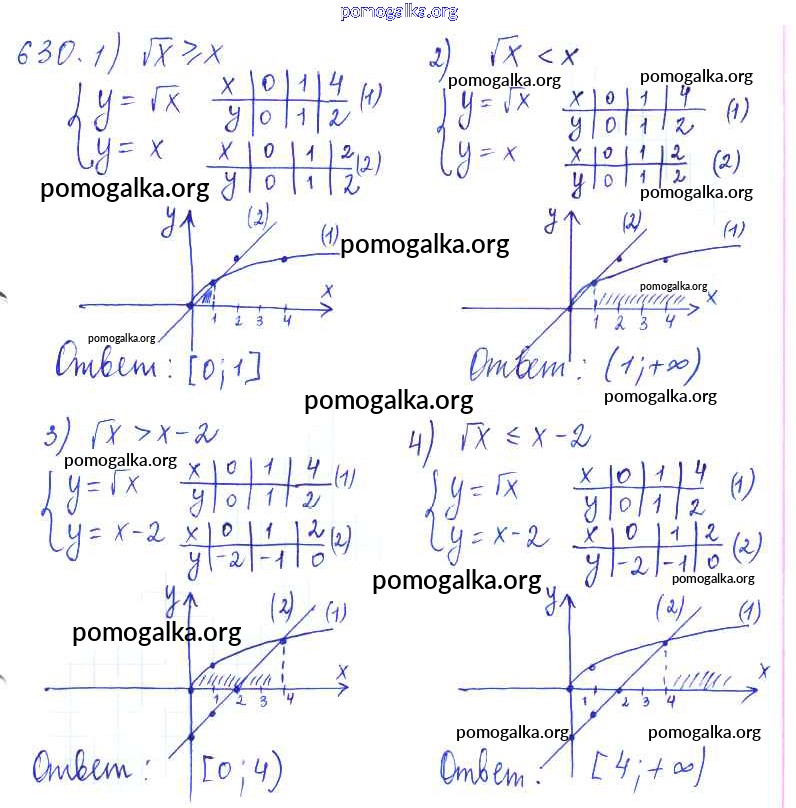 pomogalka.org
630. 1) √x ≥ x
{ y = √x
x | 0 | 1 | 4
y | 0 | 1 | 2
(1)
y = x
x | 0 | 1 | 2
y | 0 | 1 | 2
(2)
pomogalka.org
y (2) (1)
pomogalka.org
x
1 2 3 4
pomogalka.org
Ответ: [0; 1]
2) √x < x
pomogalka.org
pomogalka.org
{ y = √x
x | 0 | 1 | 4
y | 0 | 1 | 2
(1)
y = x
x | 0 | 1 | 2
y | 0 | 1 | 2
(2)
pomogalka.org
y (2) (1)
pomogalka.org
x
1 2 3 4
Ответ: (1; +∞)
pomogalka.org
pomogalka.org
3) √x > x - 2
pomogalka.org
{ y = √x
x | 0 | 1 | 4
y | 0 | 1 | 2
(1)
y = x - 2
x | 0 | 1 | 2
y | -2 | -1 | 0
(2)
y (2) (1)
pomogalka.org
x
1 2 3 4
Ответ: [0; 4)
4) √x ≤ x - 2
{ y = √x
x | 0 | 1 | 4
y | 0 | 1 | 2
(1)
y = x - 2
x | 0 | 1 | 2
y | -2 | -1 | 0
(2)
pomogalka.org
pomogalka.org
y (2) (1)
x
1 2 3 4
pomogalka.org
pomogalka.org
Ответ: [4; +∞)